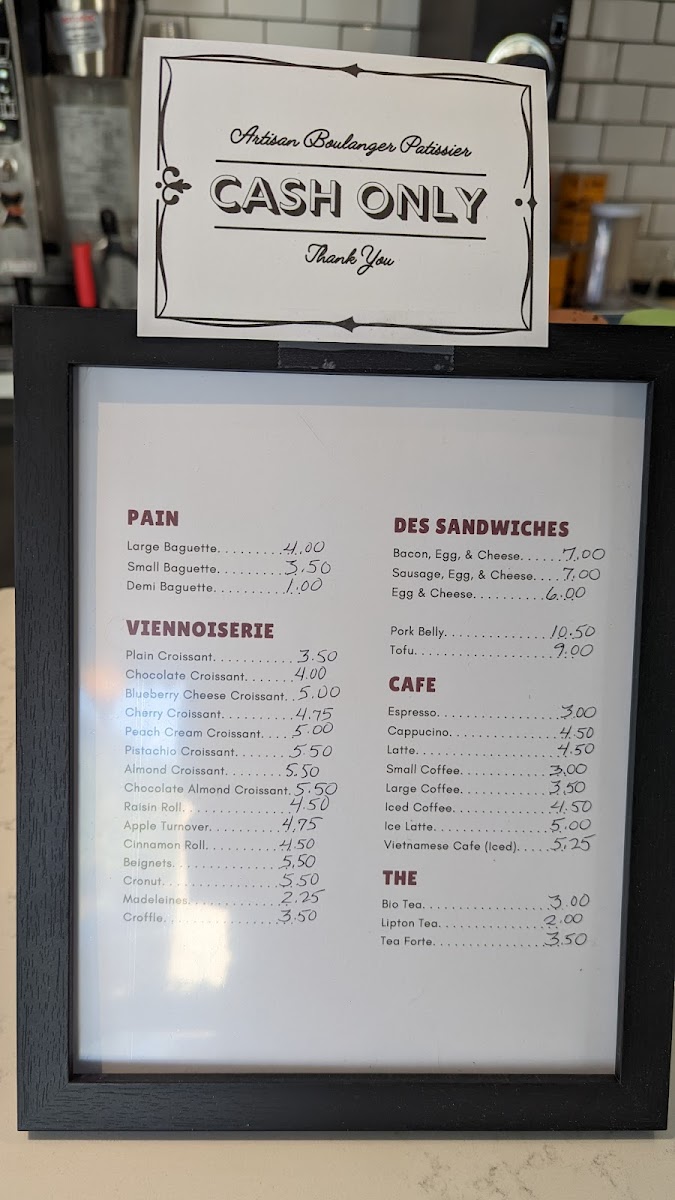 Artisan Boulanger Patissier
CASH ONLY
Thank You
PAIN
Large Baguette.........4.00
Small Baguette.........3.50
Demi Baguette..........1.00
VIENNOISERIE
Plain Croissant............3.50
Chocolate Croissant.......4.00
Blueberry Cheese Croissant..5.00
Cherry Croissant..........4.75
Peach Cream Croissant....5.00
Pistachio Croissant.......5.50
Almond Croissant.......5.50
Chocolate Almond Croissant.5.50
Raisin Roll.............4.50
Apple Turnover.........4.75
Cinnamon Roll.........4.50
Beignets..............5.50
Cronut................5.50
Madeleines............2.25
Croffle................3.50
DES SANDWICHES
Bacon, Egg, & Cheese......7.00
Sausage, Egg, & Cheese....7.00
Egg & Cheese.........6.00
Pork Belly..............10.50
Tofu....................9.00
CAFE
Espresso................3.00
Cappucino...............4.50
Latte....................4.50
Small Coffee............3.00
Large Coffee............3.50
Iced Coffee.............4.50
Ice Latte................5.00
Vietnamese Cafe (Iced).....5.25
THE
Bio Tea.................3.00
Lipton Tea...............2.00
Tea Forte................3.50